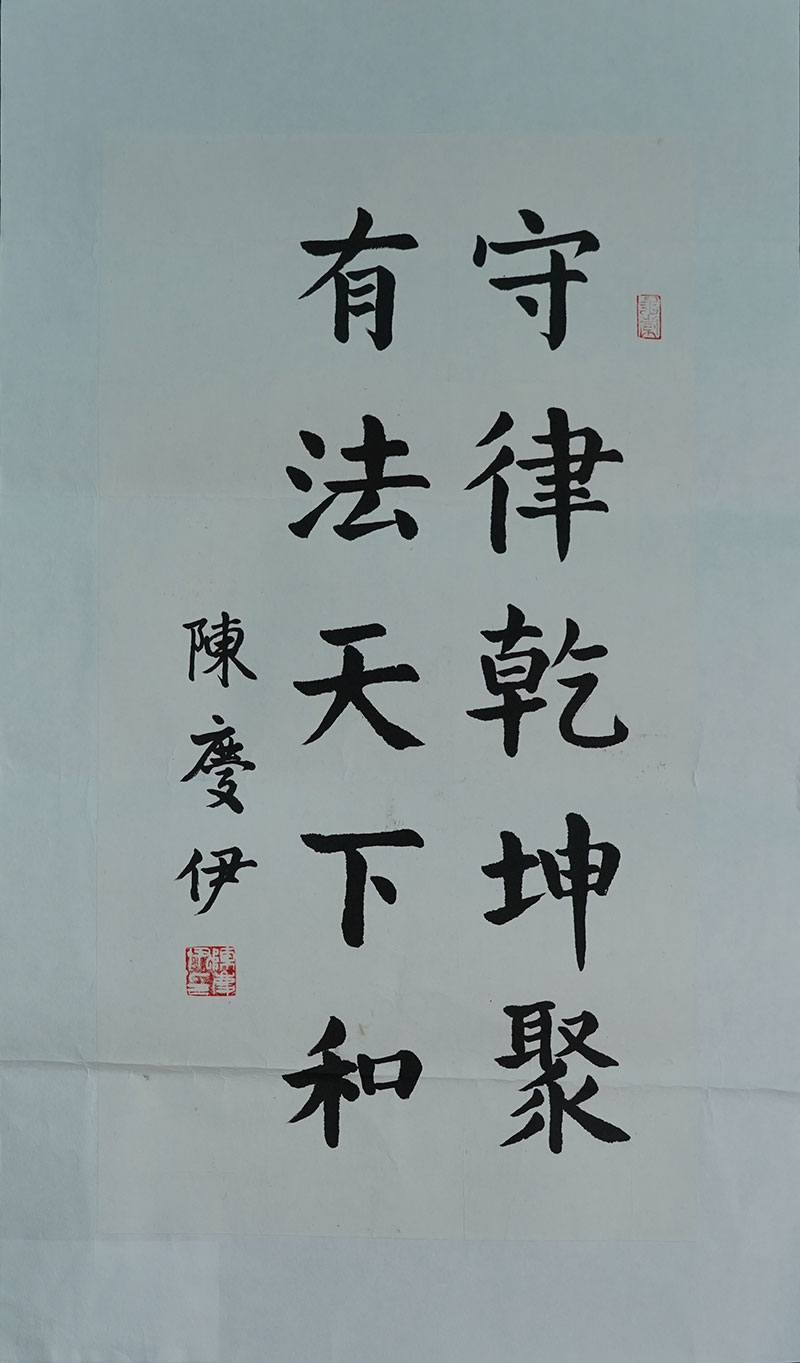 守律乾坤聚
有法天下和
陳慶伊